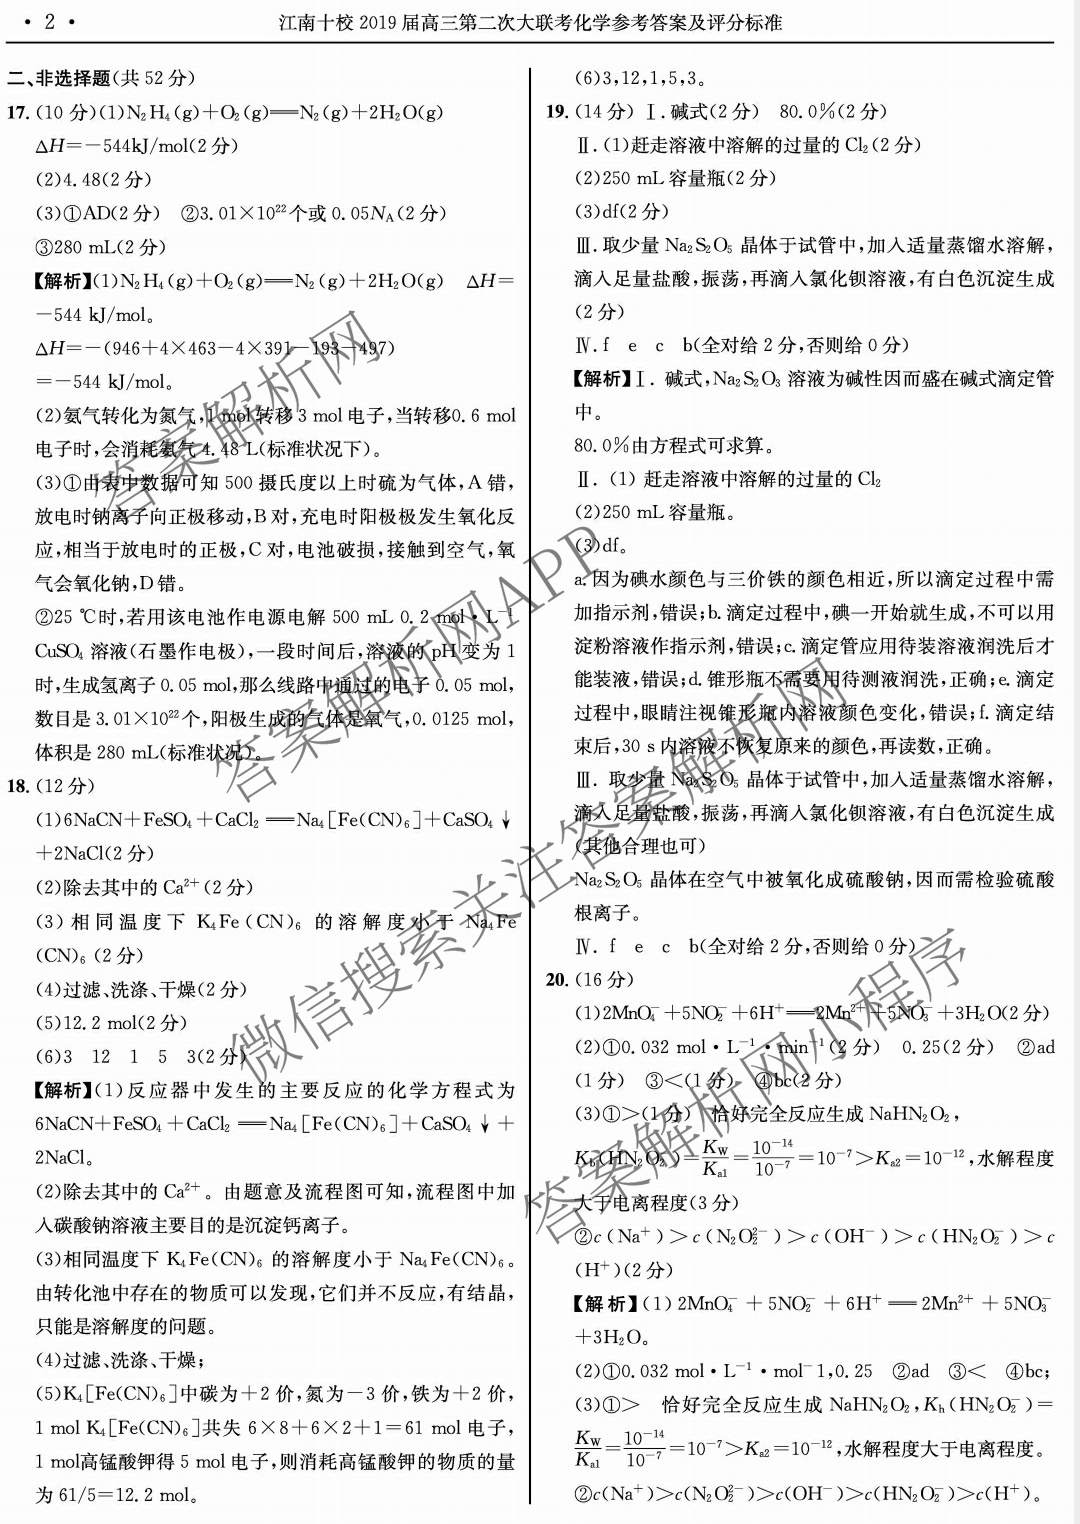 • 2 •
江南十校 2019 届高三第二次大联考化学参考答案及评分标准
二、非选择题(共 52 分)
17. (10 分)(1)N₂H₄(g)+O₂(g)══N₂(g)+2H₂O(g)
ΔH=-544kJ/mol(2分)
(2)4.48(2分)
(3)①AD(2分) ②3.01×10²²个或 0.05N_A(2 分)
③280 mL(2分)
【解析】(1)N₂H₄(g)+O₂(g)══N₂(g)+2H₂O(g) ΔH=
-544 kJ/mol。
ΔH=-(946+4×463-4×391-193-497)
=-544 kJ/mol。
(2)氨气转化为氮气,1 mol转移 3 mol 电子,当转移0.6 mol
电子时,会消耗氨气 4.48 L(标准状况下)。
(3)①由表中数据可知 500 摄氏度以上时硫为气体,A 错,
放电时钠离子向正极移动,B对,充电时阳极极发生氧化反
应,相当于放电时的正极,C 对,电池破损,接触到空气,氧
气会氧化钠,D错。
②25 ℃时,若用该电池作电源电解 500 mL 0.2 mol·L⁻¹
CuSO₄ 溶液(石墨作电极),一段时间后,溶液的 pH 变为 1
时,生成氢离子 0.05 mol,那么线路中通过的电子 0.05 mol,
数目是 3.01×10²²个,阳极生成的气体是氧气,0.0125 mol,
体积是 280 mL(标准状况)。
18. (12 分)
(1)6NaCN+FeSO₄+CaCl₂══Na₄[Fe(CN)₆]+CaSO₄↓
+2NaCl(2分)
(2)除去其中的 Ca²⁺(2分)
(3) 相同温度下 K₄Fe(CN)₆ 的溶解度小于 Na₄Fe
(CN)₆ (2 分)
(4)过滤、洗涤、干燥(2分)
(5)12.2 mol(2分)
(6)3 12 1 5 3(2分)
【解析】(1)反应器中发生的主要反应的化学方程式为
6NaCN+FeSO₄+CaCl₂══Na₄[Fe(CN)₆]+CaSO₄↓+
2NaCl。
(2)除去其中的 Ca²⁺。由题意及流程图可知,流程图中加
入碳酸钠溶液主要目的是沉淀钙离子。
(3)相同温度下 K₄Fe(CN)₆ 的溶解度小于 Na₄Fe(CN)₆。
由转化池中存在的物质可以发现,它们并不反应,有结晶,
只能是溶解度的问题。
(4)过滤、洗涤、干燥;
(5)K₄[Fe(CN)₆]中碳为+2 价,氮为-3 价,铁为+2 价,
1 mol K₄[Fe(CN)₆]共失 6×8+6×2+1=61 mol 电子,
1 mol高锰酸钾得 5 mol 电子,则消耗高锰酸钾的物质的量
为 61/5=12.2 mol。
(6)3,12,1,5,3。
19. (14分) Ⅰ.碱式(2分) 80.0%(2分)
Ⅱ.(1)赶走溶液中溶解的过量的 Cl₂(2分)
(2)250 mL 容量瓶(2分)
(3)df(2分)
Ⅲ.取少量 Na₂S₂O₅ 晶体于试管中,加入适量蒸馏水溶解,
滴入足量盐酸,振荡,再滴入氯化钡溶液,有白色沉淀生成
(2分)
Ⅳ.f e c b(全对给 2 分,否则给 0 分)
【解析】Ⅰ. 碱式,Na₂S₂O₃ 溶液为碱性因而盛在碱式滴定管
中。
80.0%由方程式可求算。
Ⅱ. (1) 赶走溶液中溶解的过量的 Cl₂
(2)250 mL 容量瓶。
(3)df。
a.因为碘水颜色与三价铁的颜色相近,所以滴定过程中需
加指示剂,错误;b.滴定过程中,碘一开始就生成,不可以用
淀粉溶液作指示剂,错误;c.滴定管应用待装溶液润洗后才
能装液,错误;d.锥形瓶不需要用待测液润洗,正确;e.滴定
过程中,眼睛注视锥形瓶内溶液颜色变化,错误;f.滴定结
束后,30 s内溶液不恢复原来的颜色,再读数,正确。
Ⅲ. 取少量 Na₂S₂O₅ 晶体于试管中,加入适量蒸馏水溶解,
滴入足量盐酸,振荡,再滴入氯化钡溶液,有白色沉淀生成
(其他合理也可)
Na₂S₂O₅ 晶体在空气中被氧化成硫酸钠,因而需检验硫酸
根离子。
Ⅳ. f e c b(全对给 2 分,否则给 0 分)
20. (16分)
(1)2MnO₄⁻+5NO₂⁻+6H⁺══2Mn²⁺+5NO₃⁻+3H₂O(2分)
(2)①0.032 mol·L⁻¹·min⁻¹(2分) 0.25(2分) ②ad
(1分) ③<(1分) ④bc(2分)
(3)①>(1分) 恰好完全反应生成 NaHN₂O₂,
K_h(HN₂O₂⁻)=K_W/K_a1=10⁻¹⁴/10⁻⁷=10⁻⁷>K_a2=10⁻¹²,水解程度
大于电离程度(3分)
②c(Na⁺)>c(N₂O₂²⁻)>c(OH⁻)>c(HN₂O₂⁻)>c
(H⁺)(2分)
【解析】(1)2MnO₄⁻+5NO₂⁻+6H⁺══2Mn²⁺+5NO₃⁻
+3H₂O。
(2)①0.032 mol·L⁻¹·mol⁻1,0.25 ②ad ③< ④bc;
(3)①> 恰好完全反应生成 NaHN₂O₂,K_h(HN₂O₂⁻)=
K_W/K_a1=10⁻¹⁴/10⁻⁷=10⁻⁷>K_a2=10⁻¹²,水解程度大于电离程度。
②c(Na⁺)>c(N₂O₂²⁻)>c(OH⁻)>c(HN₂O₂⁻)>c(H⁺)。
答案解析网
答案解析网APP
微信搜索关注答案解析网
答案解析网小程序